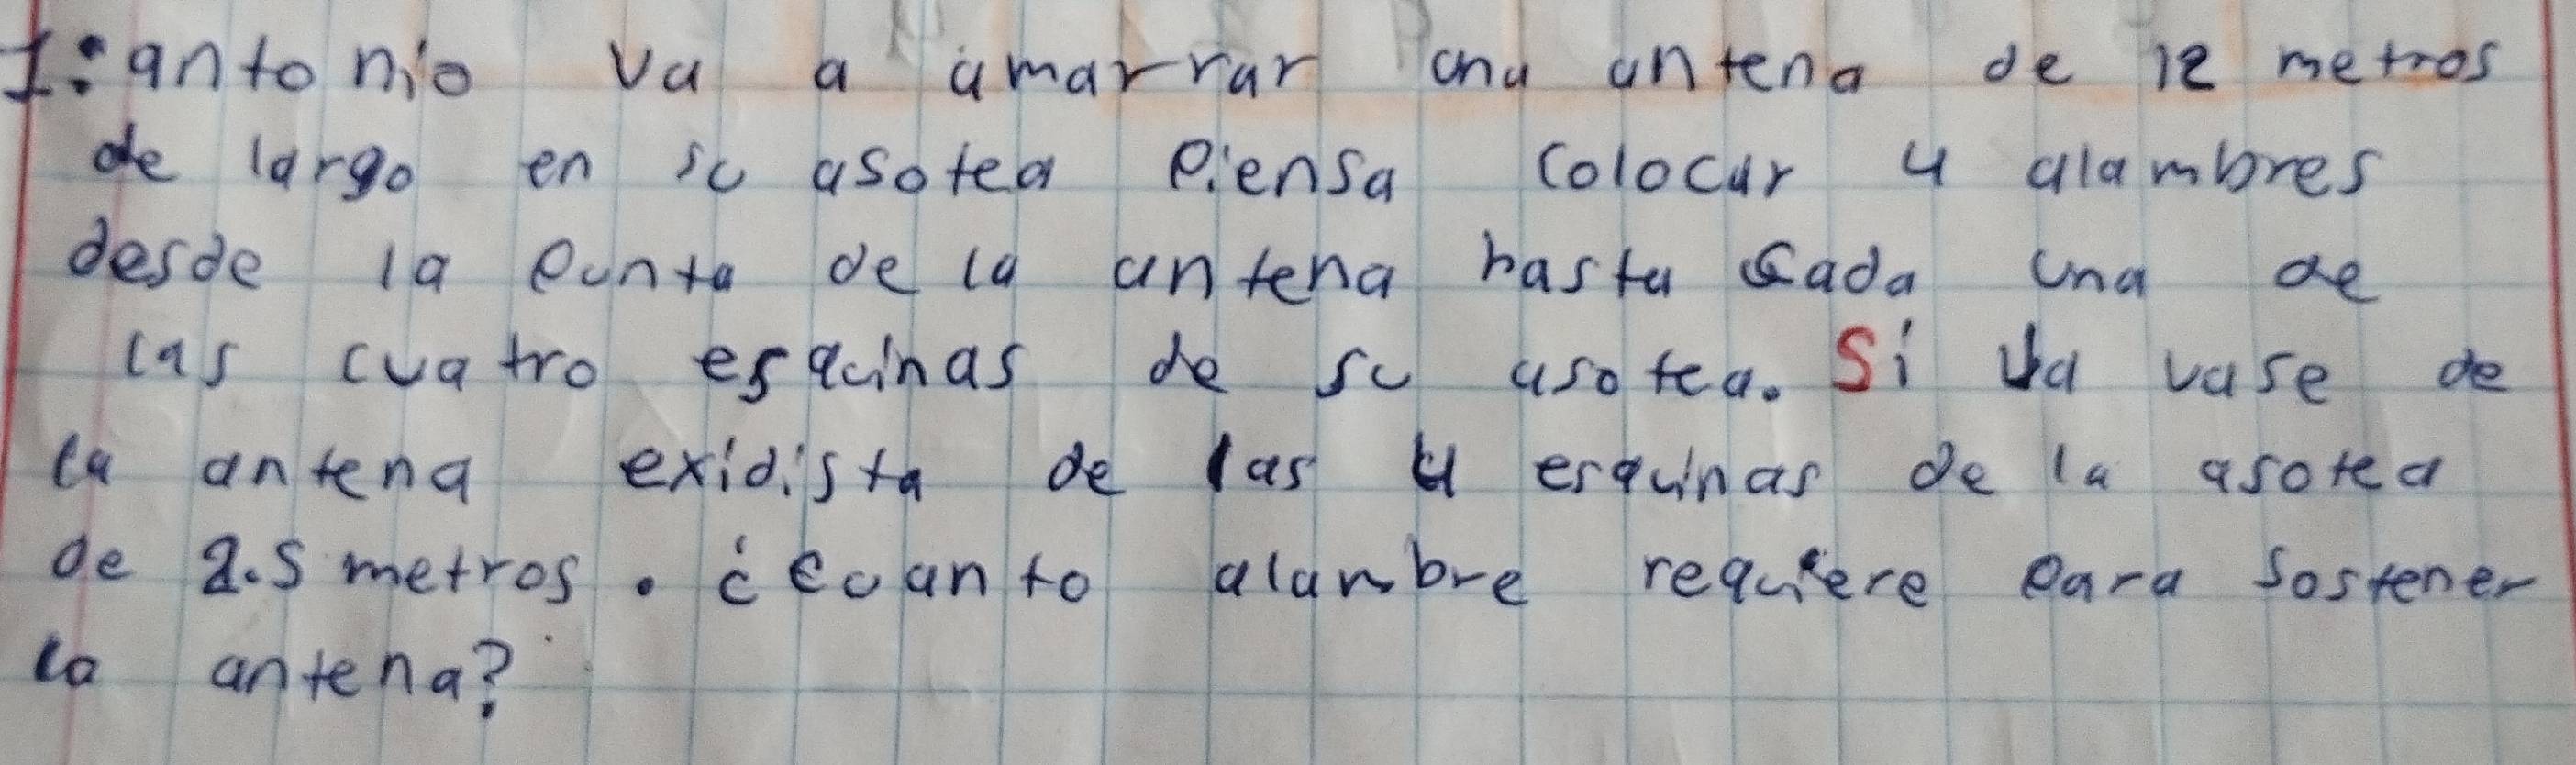 1: antonio va a amarrar una antena de 12 metros
de largo en su asotea Piensa colocar 4 alambres
desde la Punta de la antena hasta cada una de
las cuatro esquinas de su asotea. Si la vase de
la antena exidista de las 4 esquinas de la asotea
de 2.5 metros. ¿cuanto alambre requiere Para sostener
la antena?